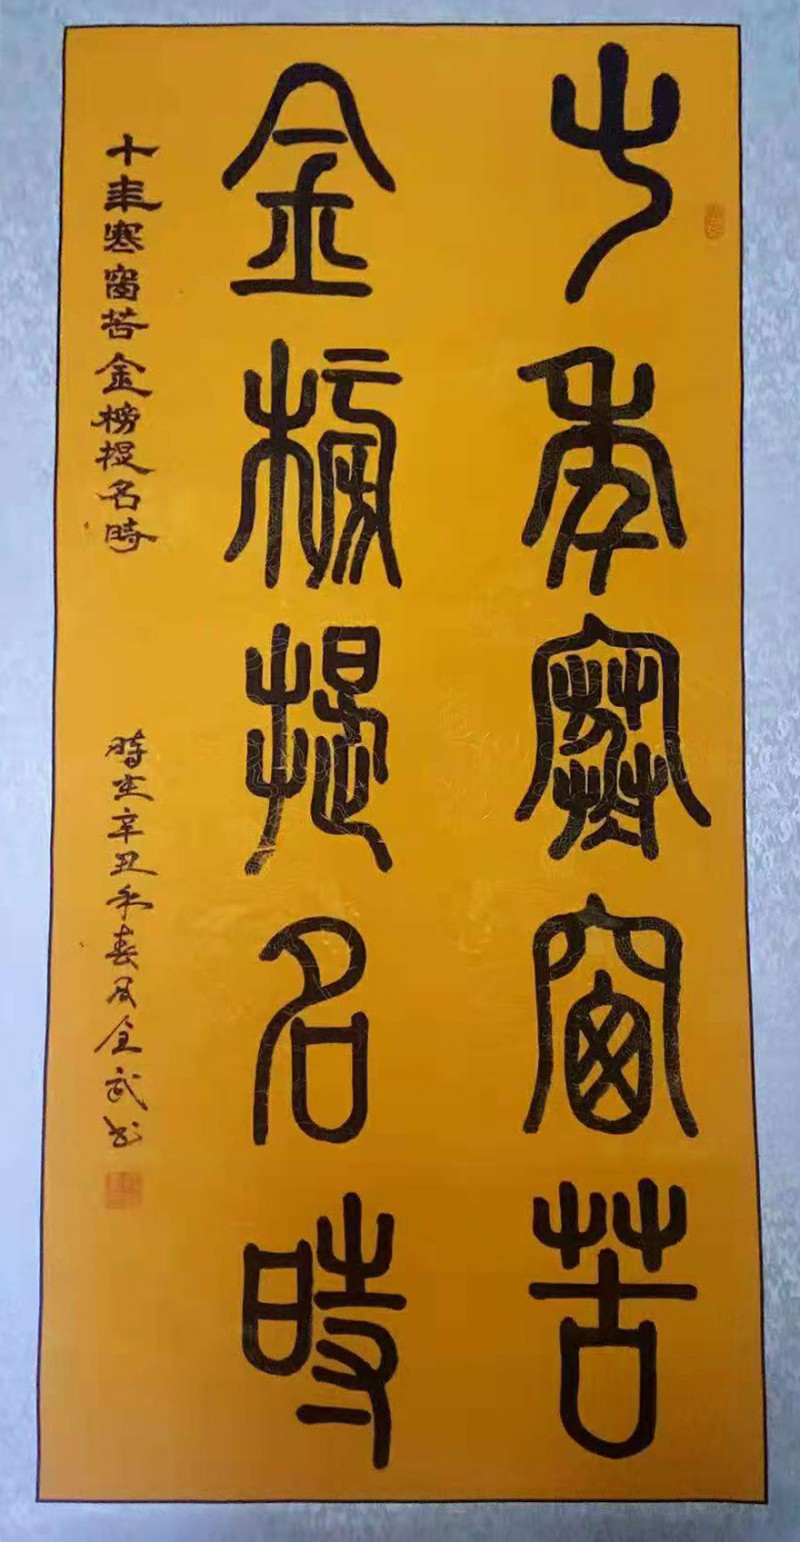 十年寒窗苦
金榜提名時
十年寒窗苦金榜提名時
時在辛丑年春月金武书